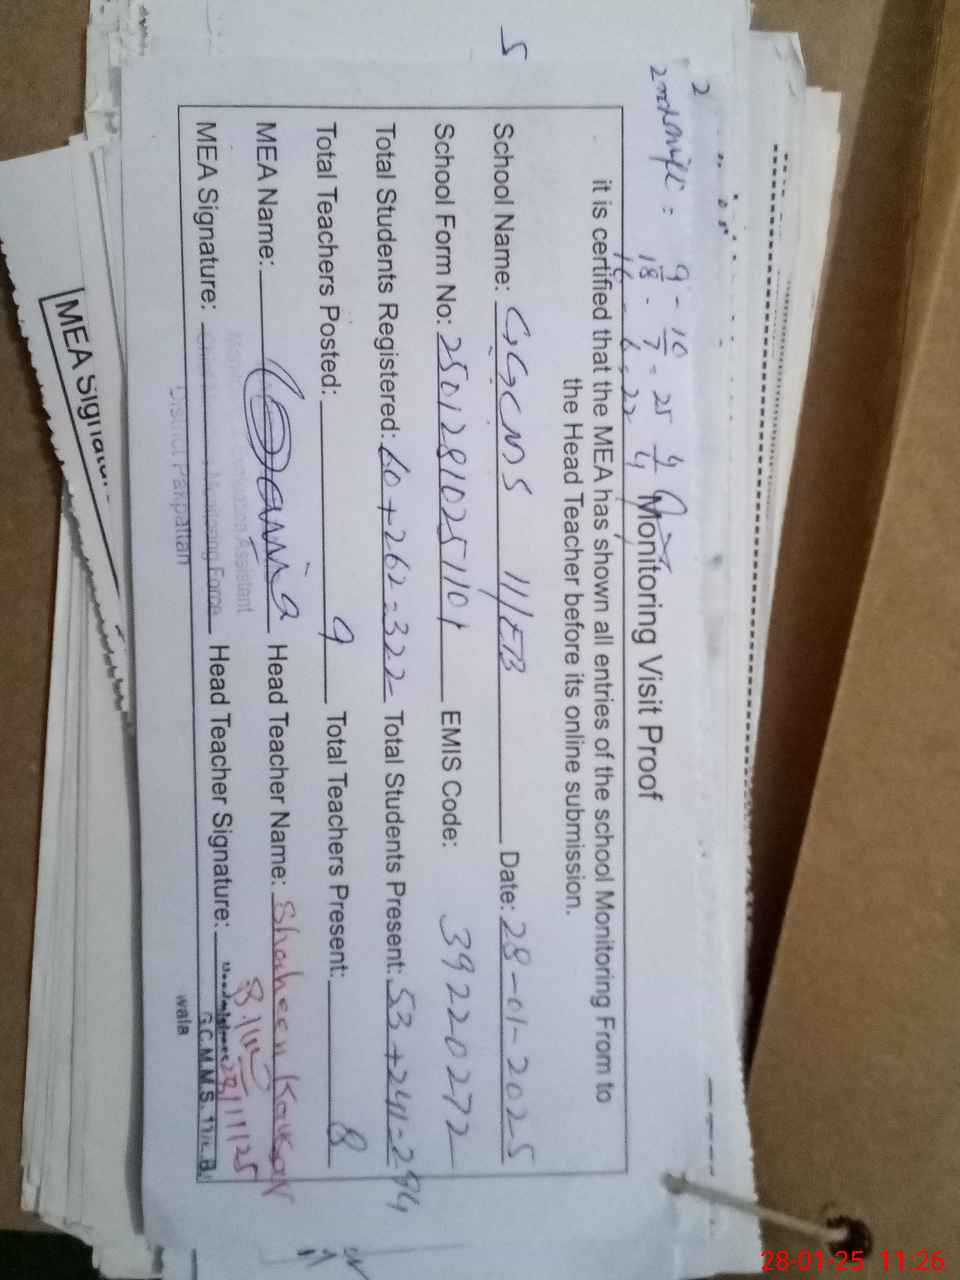 5
2
9 - 10 4
18 - 7 = 25 4
16 - 6 = 22
Monitoring Visit Proof
it is certified that the MEA has shown all entries of the school Monitoring From to
the Head Teacher before its online submission.
School Name: GGCMS 11/EB Date: 28-01-2025
School Form No: 25012810251101 EMIS Code: 39220272
Total Students Registered: 60+262=322 Total Students Present: 53+241=294
Total Teachers Posted: 9 Total Teachers Present: 8
MEA Name: Head Teacher Name: Shaheen Kausar
MEA Signature: Head Teacher Signature:
Monitoring Force
District Pakpattan
wala
MEA Signatu
28-01-25 11:26